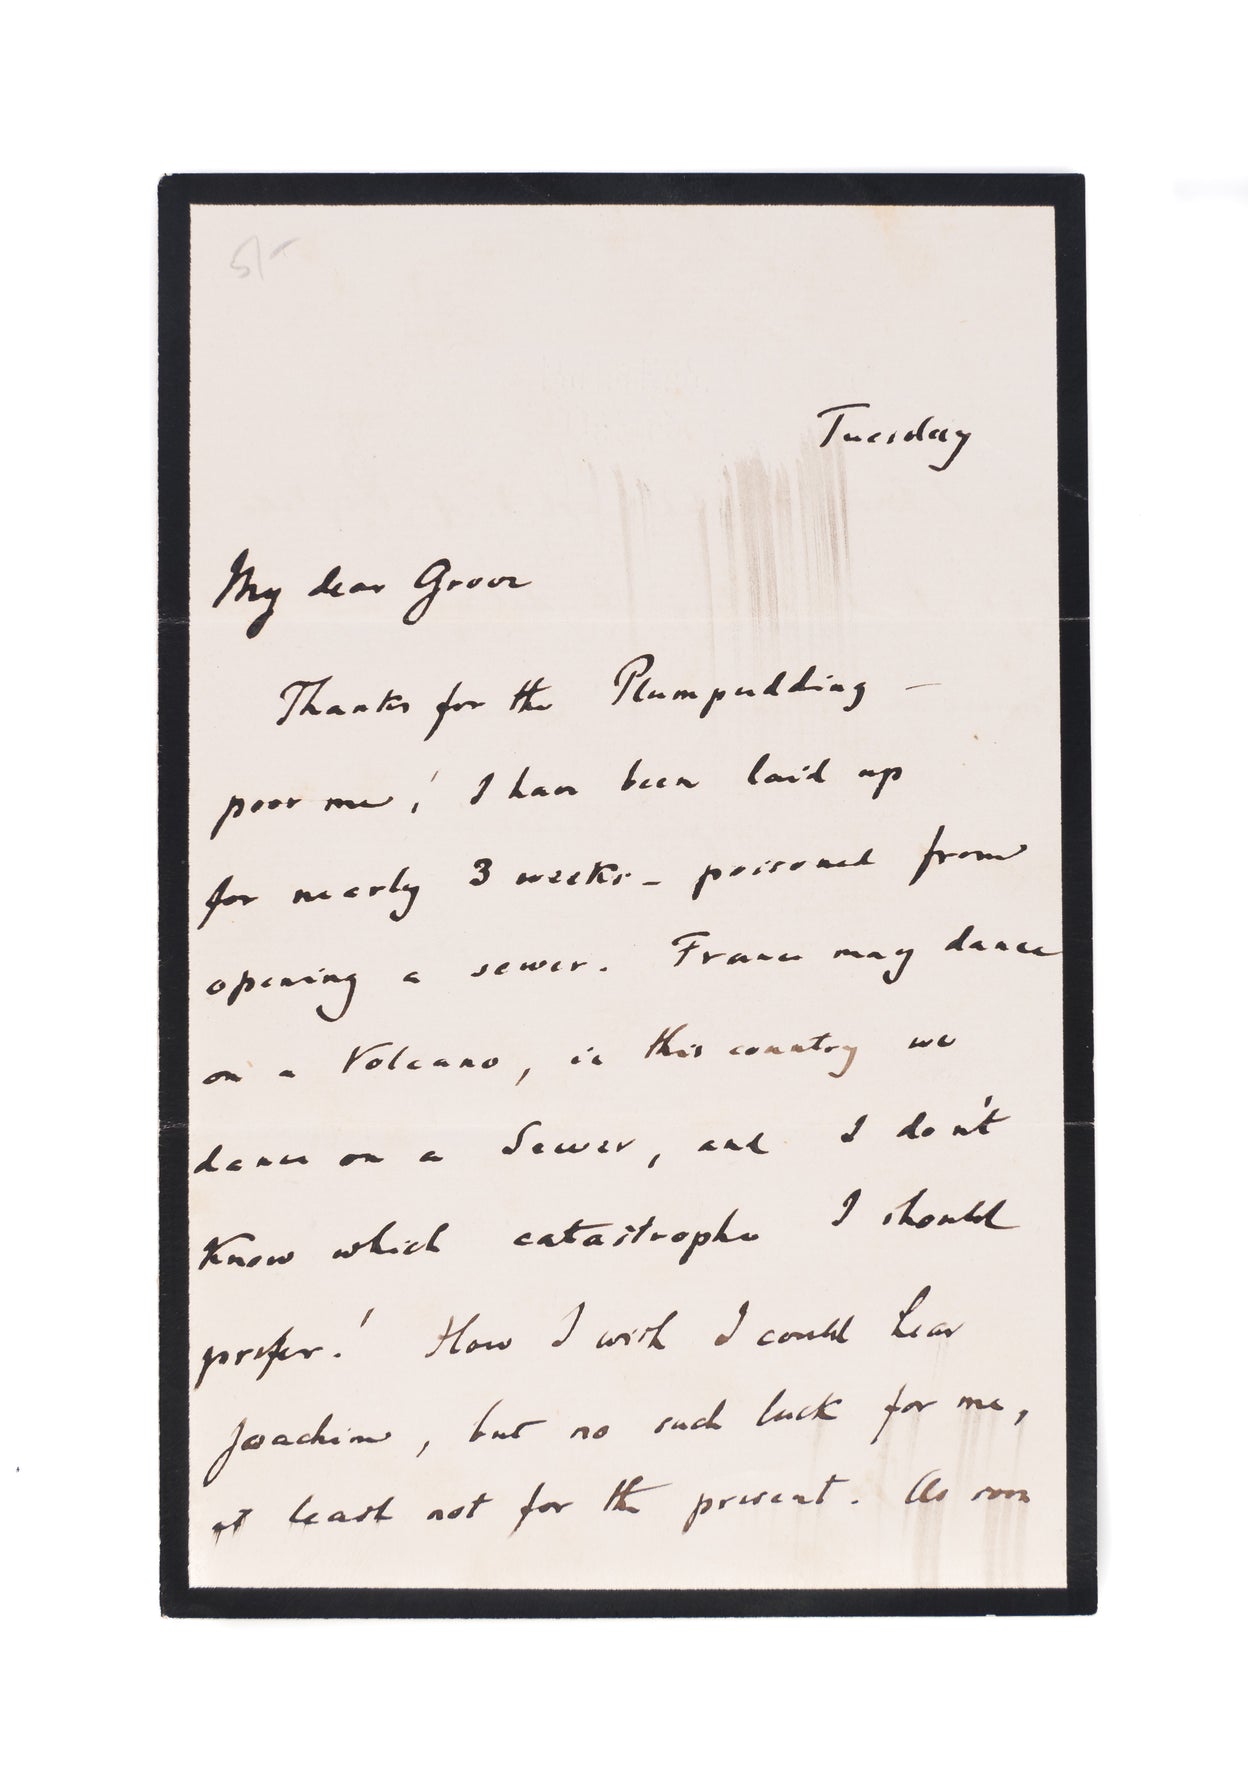 5/-
Tuesday
My dear Grove
Thanks for the Plumpudding –
poor me! I have been laid up
for nearly 3 weeks – poisoned from
opening a sewer. France may dance
on a Volcano, in this country we
dance on a Sewer, and I don't
know which catastrophe I should
prefer! How I wish I could hear
Joachim, but no such luck for me,
at least not for the present. As soon